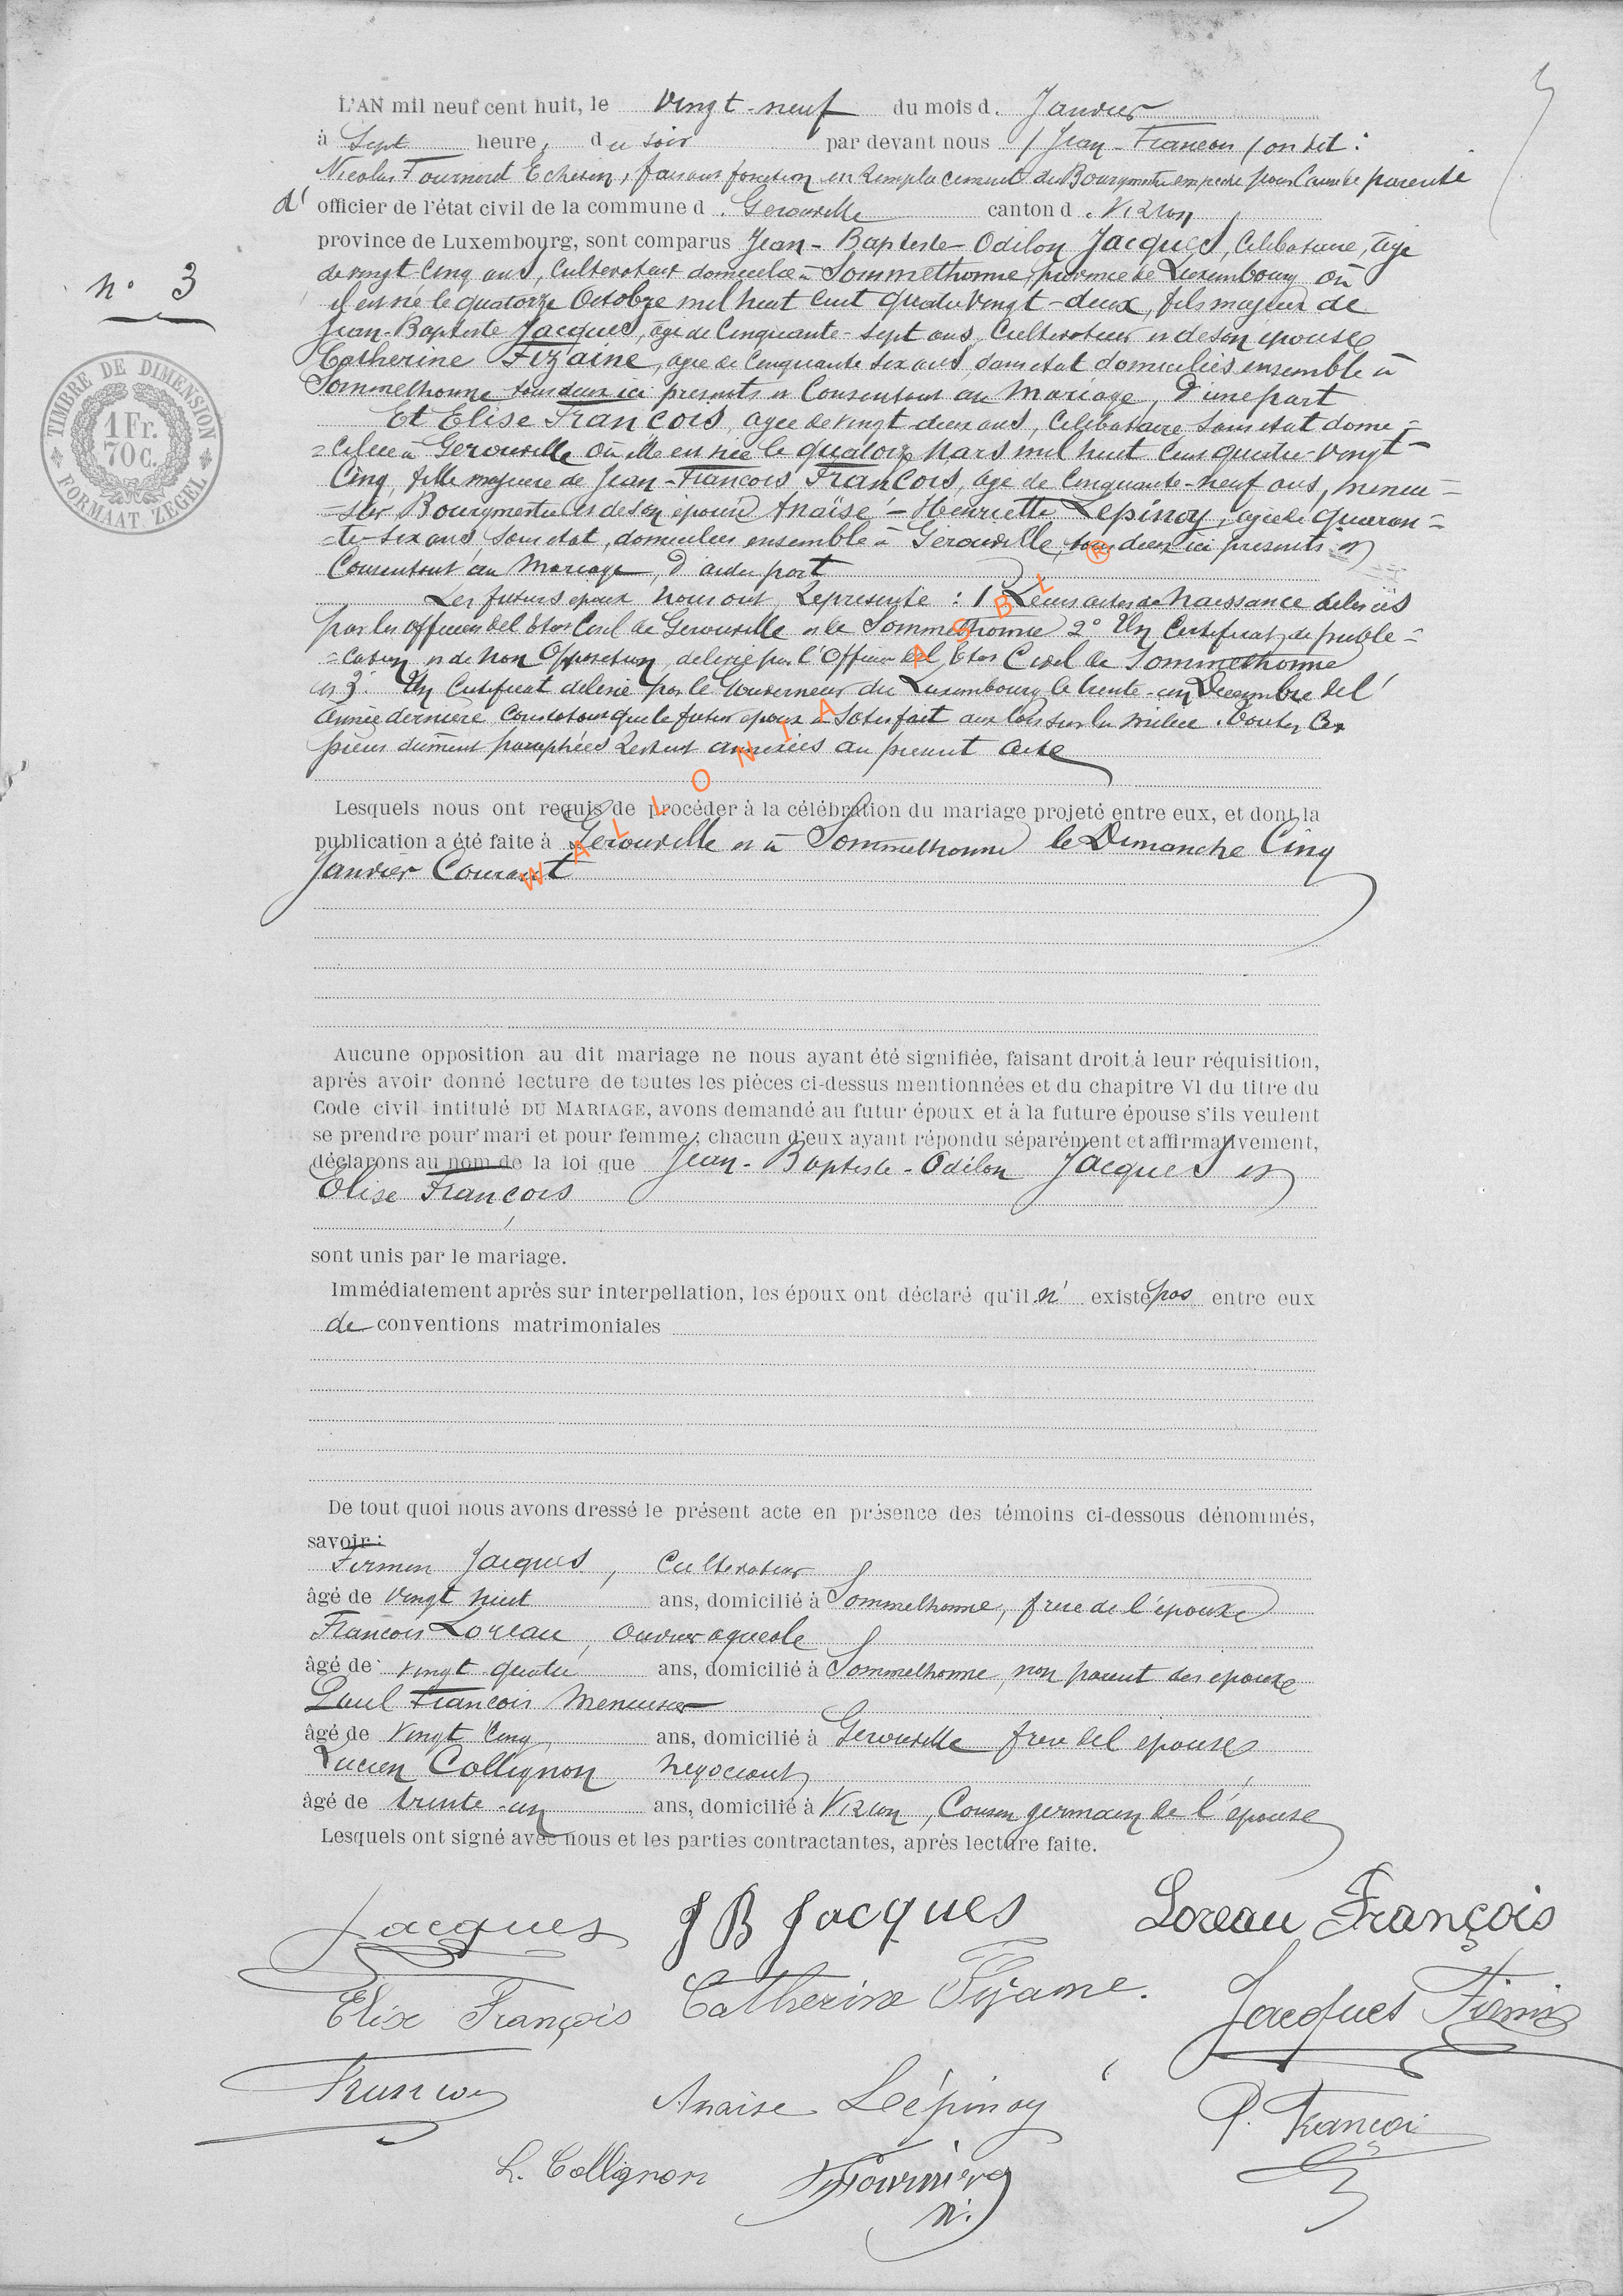 L'AN mil neuf cent huit, le vingt-neuf du mois d. Janvier
à Sept heure, du soir par devant nous / Jean-Francois / on dit :
Nicolas Fourniret Echevin, faisant fonction en remplacement du Bourgmestre empeché pour Cause de parenté
d' officier de l'état civil de la commune d. Gerouville canton d. Virton
province de Luxembourg, sont comparus Jean-Baptiste-Odilon Jacques, Célibataire, âgé
de vingt-Cinq ans, Cultivateur domicilié à Sommethonne, province de Luxembourg où
il est né le quatorze Octobre mil huit Cent quatre vingt-deux, fils majeur de
Jean-Baptiste Jacques, âgé de Cinquante-sept ans, Cultivateur et de son epouse
Catherine Fizaine, agée de Cinquante six ans, sans etat domiciliés ensemble à
Sommethonne tous deux ici presents et Consentant au Mariage, D'une part
Et Elise Francois, agée de vingt deux ans, Célibataire sans etat domi=
=ciliée à Gerouville où elle est née le quatorze Mars mil huit Cent quatre-vingt-
Cinq, fille majeure de Jean-Francois Francois, agé de Cinquante-neuf ans, menui=
=sier Bourgmestre et de son épouse Anaïse-Henriette Lepinoy, agée de quaran=
=te-six ans, sans etat, domiciliés ensemble à Gerouville, tous deux ici presents et
Consentant au Mariage, D'autre part
Les futurs epoux nous ont Représenté : 1° Leurs actes de Naissance délivrés
par les officiers del'Etat Civil de Gerouville et de Sommethonne 2° Un Certificat de publi=
=cation et de Non Opposition, délivré par l'Officier del'Etat Civil de Sommethonne
et 3° Un Certificat délivré par le Gouverneur du Luxembourg le trente-un Décembre del'
année dernière Constatant que le futur epoux a Satisfait aux lois sur la milice. Toutes Ces
pièces dûment paraphées restent annexées au présent acte
Lesquels nous ont requis de procéder à la célébration du mariage projeté entre eux, et dont la
publication a été faite à Gerouville et à Sommethonne le Dimanche Cinq
Janvier Courant
Aucune opposition au dit mariage ne nous ayant été signifiée, faisant droit à leur réquisition,
après avoir donné lecture de toutes les pièces ci-dessus mentionnées et du chapitre VI du titre du
Code civil intitulé DU MARIAGE, avons demandé au futur époux et à la future épouse s'ils veulent
se prendre pour mari et pour femme ; chacun d'eux ayant répondu séparément et affirmativement,
déclarons au nom de la loi que Jean-Baptiste-Odilon Jacques et
Elise François
sont unis par le mariage.
Immédiatement après sur interpellation, les époux ont déclaré qu'il n' existe pas entre eux
de conventions matrimoniales
De tout quoi nous avons dressé le présent acte en présence des témoins ci-dessous dénommés,
savoir :
Firmin Jacques, Cultivateur
âgé de vingt huit ans, domicilié à Sommethonne, frère de l'époux
Francois Loreau, ouvrier agricole
âgé de vingt-quatre ans, domicilié à Sommethonne, non parent des epoux
Paul Francois Menuisier
âgé de vingt Cinq ans, domicilié à Gerouville frère del'épouse
Lucien Collignon négociant
âgé de trente-un ans, domicilié à Virton, Cousin germain de l'épouse
Lesquels ont signé avec nous et les parties contractantes, après lecture faite.
Jacques J B Jacques Loreau François
Elise François Catherine Fizaine. Jacques Firmin
Francois Anaise Lépinoy P. François
L. Collignon Fourniret
N.
n° 3
TIMBRE DE DIMENSION
1 Fr.
70 C.
FORMAAT ZEGEL
WALLONIA ASBL ®